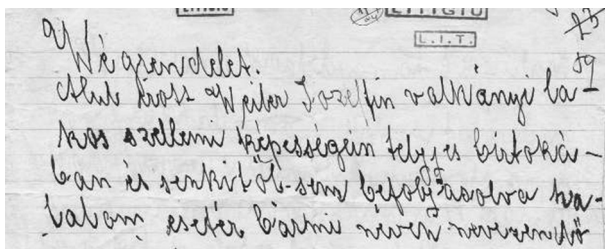 LITIGIU
LITIGIU
23
L.I.T.
59
Végrendelet.
Alulírott Weiler Jozeffin valkányi la-
kos szellemi képességein teljes birtoká-
ban és senkitől-sem befolyásolva ha-
lalom esetér bármi néven nevezendő